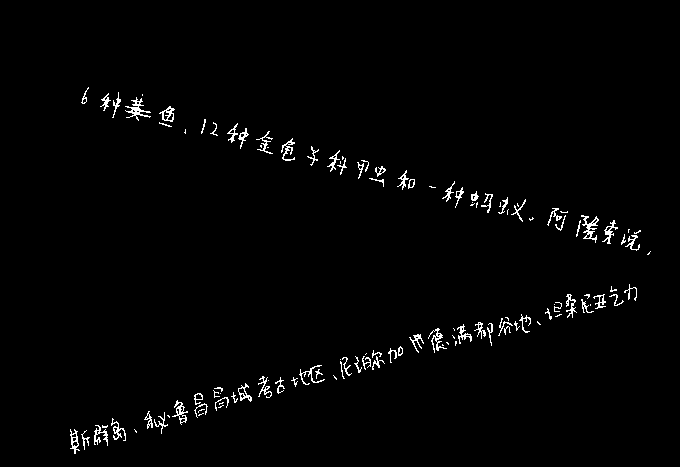 6种鱼、12种金龟子科甲虫和一种蚂蚁。阿隆索说,
斯群岛、秘鲁昌昌城考古地区、尼泊尔加德满都谷地、坦桑尼亚乞力